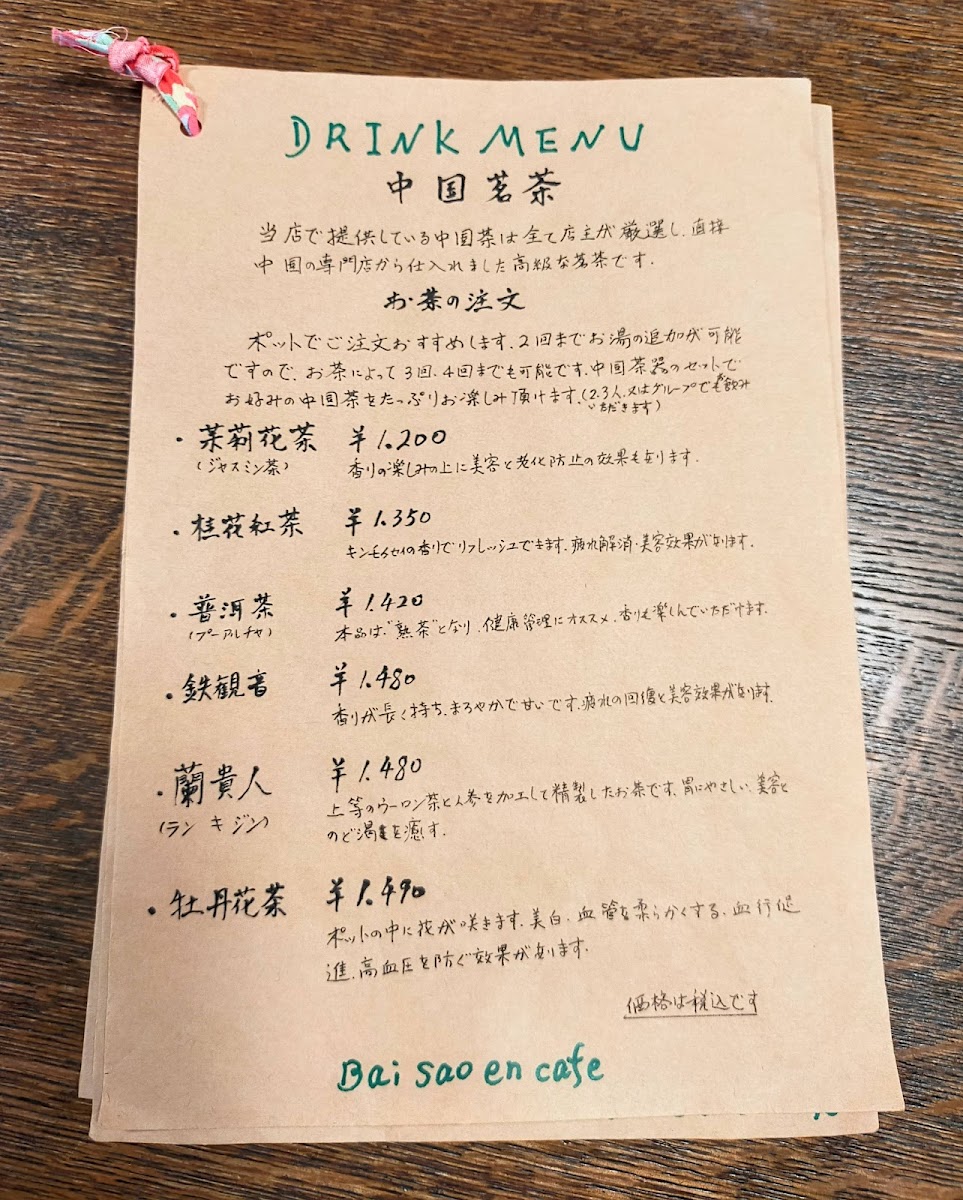 DRINK MENU
中国茗茶
当店で提供している中国茶は全て店主が厳選し、直接
中国の専門店から仕入れました高級な茗茶です.
お茶の注文
ポットでご注文おすすめします、2回までお湯の追加が可能
ですので、お茶によって3回、4回までも可能です、中国茶器のセットで
お好みの中国茶をたっぷりお楽しみ頂けます、(2.3人、又はグループでも飲み
いただきます)
・茉莉花茶 ¥1.200
(ジャスミン茶) 香りの楽しみの上に美容と老化防止の効果もあります.
・桂花紅茶 ¥1.350
キンモクセイの香りでリフレッシュできます、疲れ解消・美容効果があります.
・普洱茶 ¥1.420
(プーアルチャ) 本品は"熟茶"となり、健康管理にオススメ、香りも楽しんでいただけます.
・鉄観音 ¥1.480
香りが長く持ち、まろやかで甘いです、疲れの回復と美容効果があります.
・蘭貴人 ¥1.480
(ランキジン) 上等のウーロン茶と人参を加工して精製したお茶です、胃にやさしい、美容と
のど渇きを癒す.
・牡丹花茶 ¥1.490
ポットの中に花が咲きます、美白、血管を柔らかくする、血行促
進、高血圧を防ぐ効果があります.
価格は税込です
Bai sao en cafe